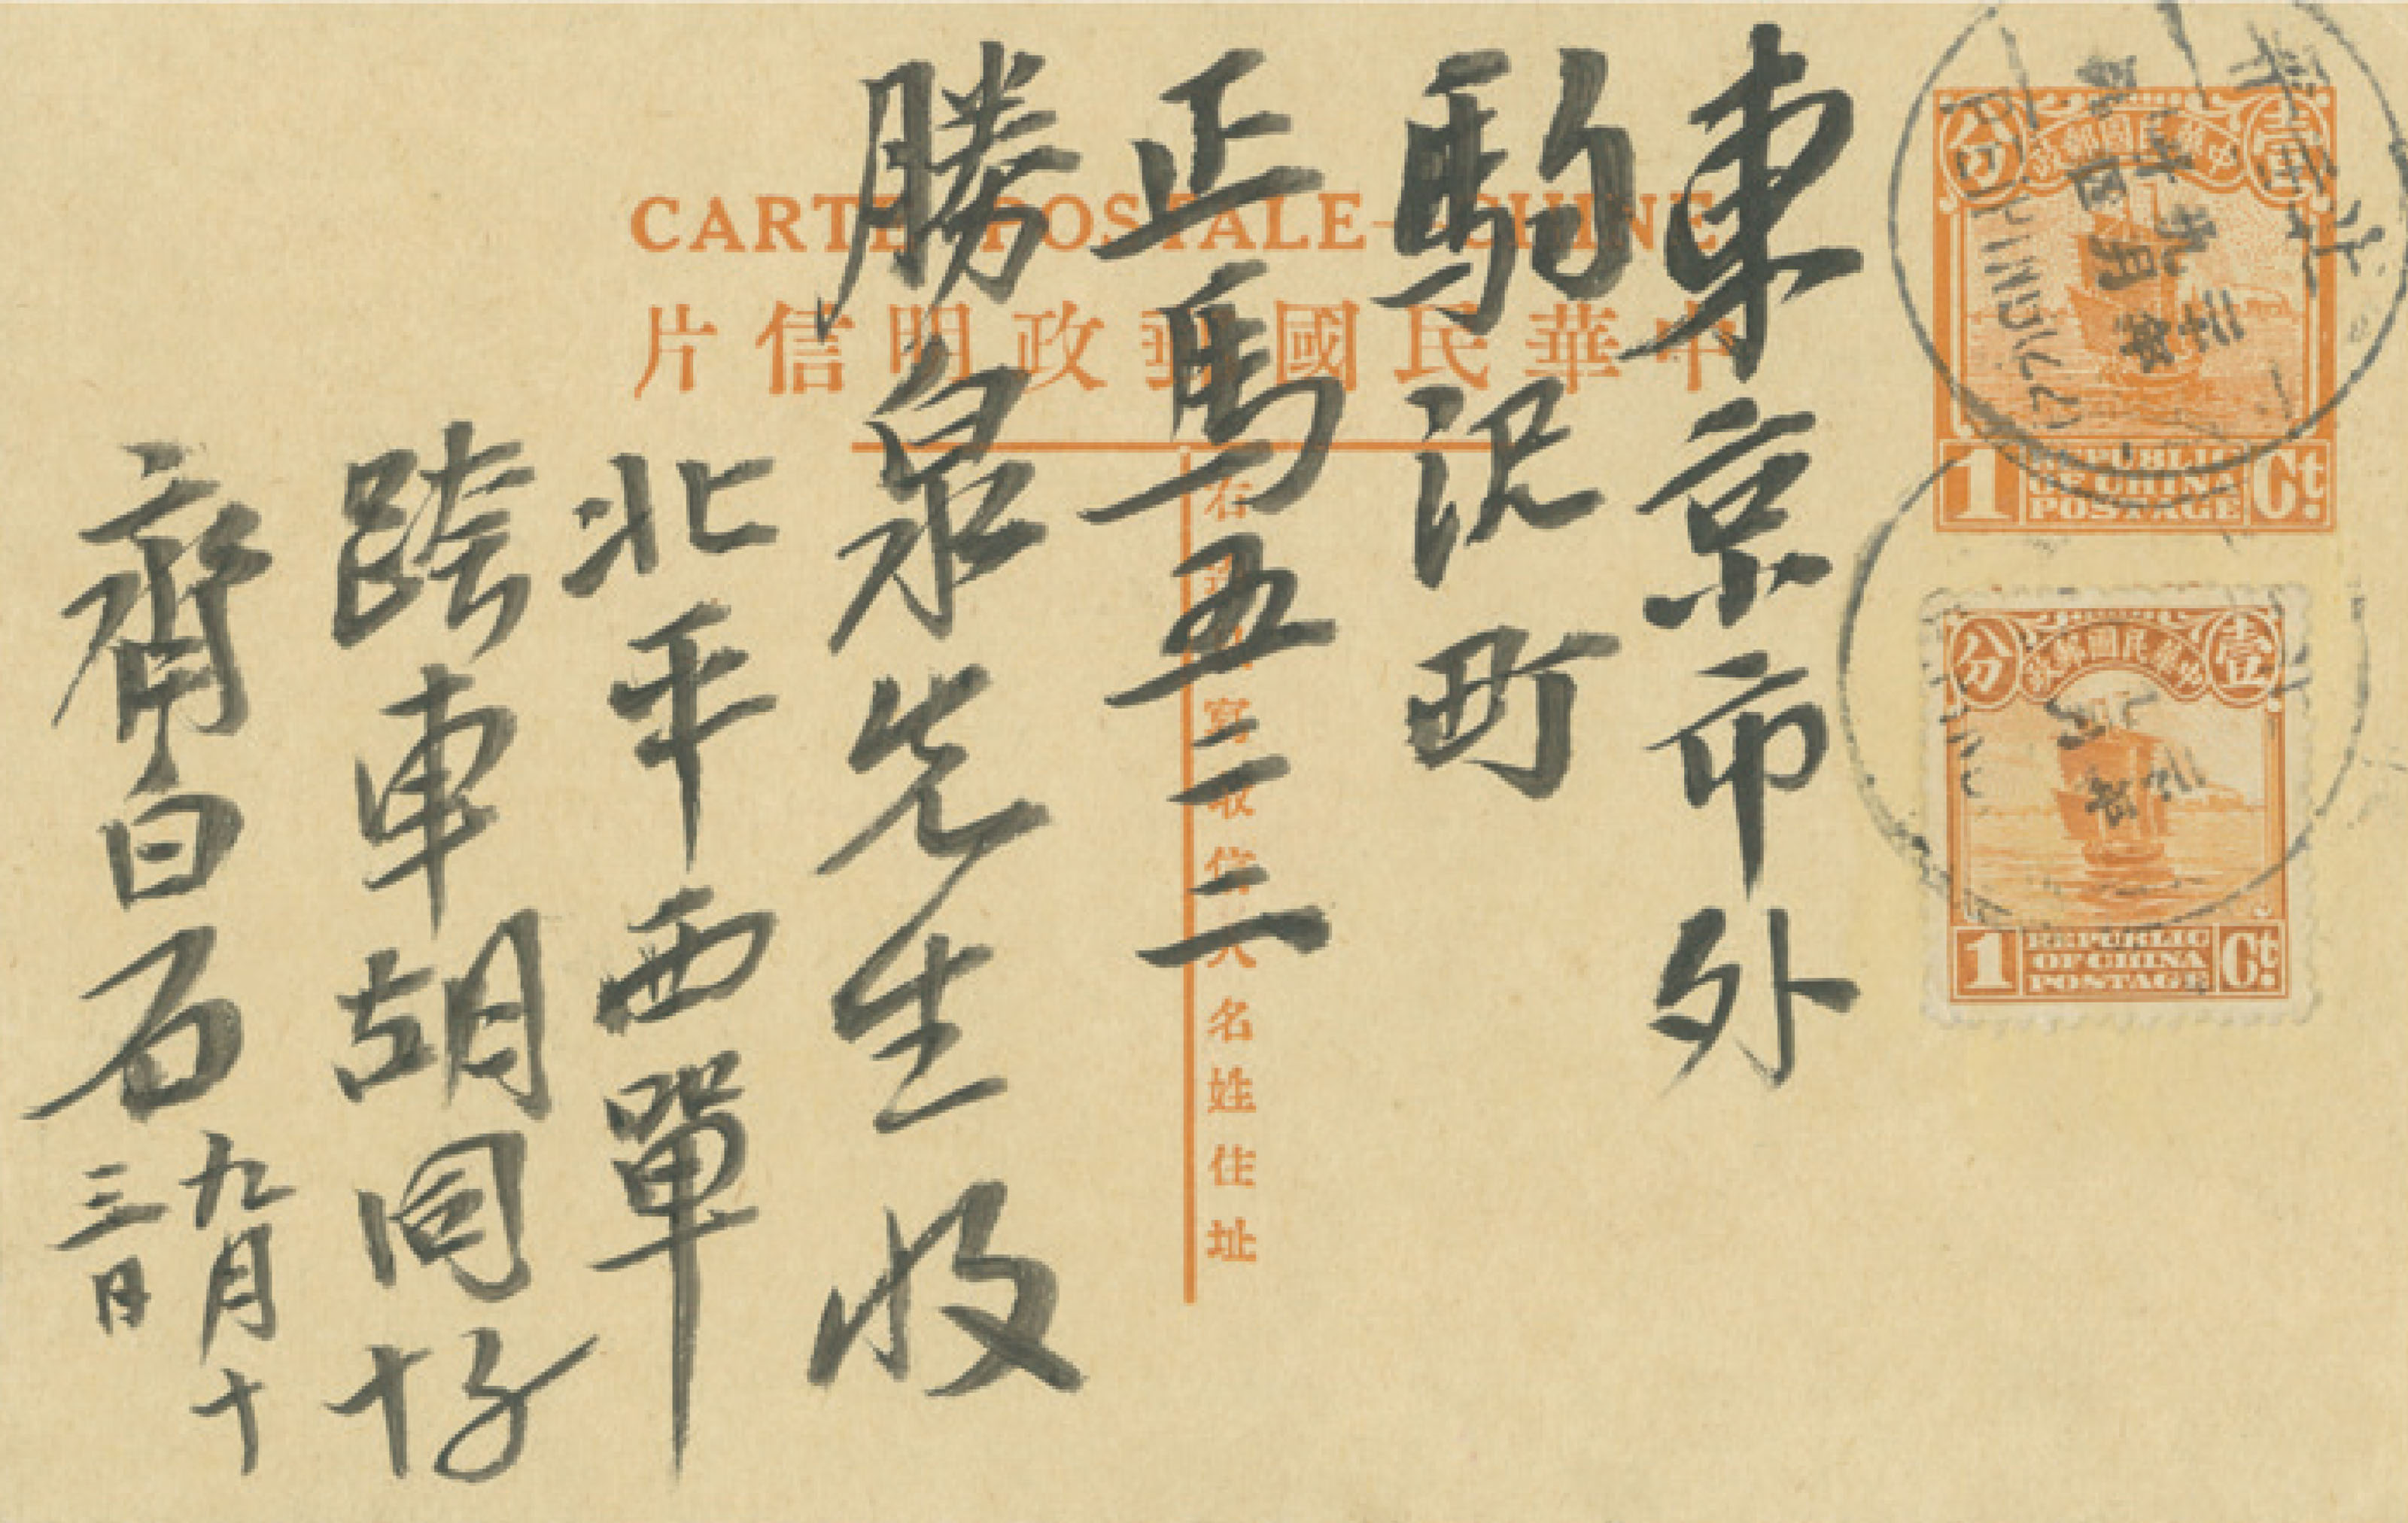 東京市外
駒沢町
正馬五二三
勝泉先生收
北平西單
跨車胡同十五号
齊白石
九月十
三日
CARTE POSTALE—CHINE
中華民國郵政明信片
右邊祇寫收信人名姓住址
中華民國郵政
壹分
1 Ct.
REPUBLIC
OF CHINA
POSTAGE
中華民國郵政
壹分
1 Ct.
REPUBLIC
OF CHINA
POSTAGE